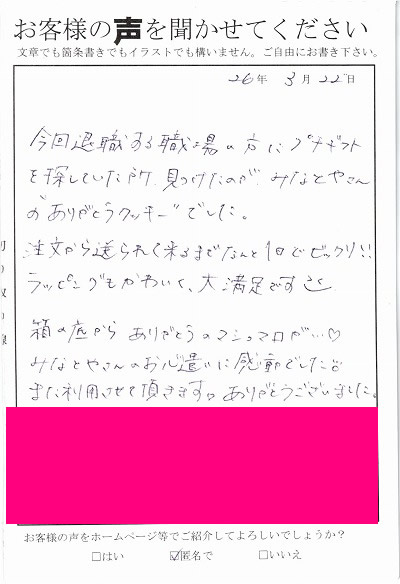 お客様の声を聞かせてください
文章でも箇条書きでもイラストでも構いません。ご自由にお書き下さい。
26年 3月 22日
今回退職する職場の方にプチギフト
を探していた所、見つけたのが、みなとやさん
の"ありがとうクッキー"でした。
注文から送られて来るまでなんと1日でビックリ!!
ラッピングもかわいく、大満足です
箱の底から ありがとうのマシュマロが…♡
みなとやさんのお心遣いに感動でした
また利用させて頂きます。ありがとうございました。
お客様の声をホームページ等でご紹介してよろしいでしょうか?
□はい ☑匿名で □いいえ